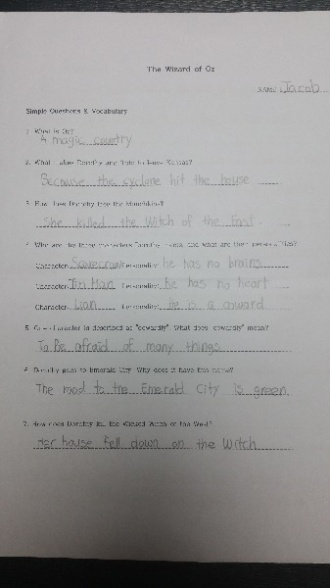 The Wizard of Oz
Jacob
Simple Questions & Vocabulary
1. What is Oz?
A magic country
2. What makes Dorothy and Toto to leave Kansas?
Because the cyclone hit the house
3. How does Dorothy free the Munchkins?
She killed the Witch of the East
4. Who are the three characters Dorothy meets, and what are their personalities?
Character: Personality: he has no brains
Character: Tin Man Personality: he has no heart
Character: Lian Personality: he is a coward
5. is described as "cowardly". What does "cowardly" mean?
To Be afraid of many things
6. Dorothy goes to Emerald City. Why does it have this name?
The road to the Emerald City is green.
7. How does Dorothy kill the Wicked Witch of the West?
Her house fell down on the Witch